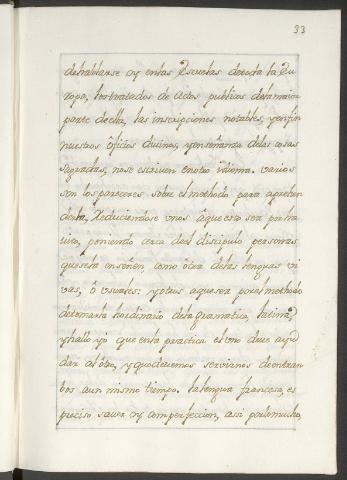 33
de hablarse oy en las Escuelas de toda la Eu
ropa, los tratados de actos publicos de la maior
parte de ella, las inscripciones notables, y en fin
nuestros oficios divinos, y enseñanza de las cosas
sagradas, no se escriven en otro idioma. varios
son los pareceres sobre el methodo para aprehen
derla, reduciendose unos a que esto sea por la
uso, poniendo cerca del discipulo personas
que se la enseñen, como ôtra de las lenguas vi
vas, ô usuales: y otros a que sea por el methodo
de tomarla hordinario de la gramatica latina,
y hallo yo que en la practica el uno deve ayu
dar al ôtro, y que devemos servirnos de entram
bos a un mismo tiempo. la lengua francesa, es
preciso saver oy con perfeccion, assi por lo mucho,